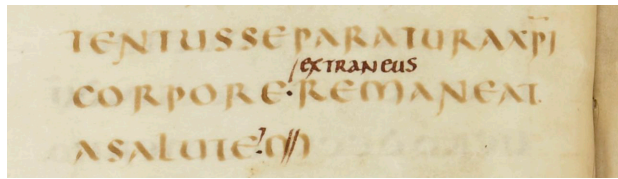 TENTUSSEPARATURAXPI
EXTRANEUS
CORPORE·REMANEAT
ASALUTEM